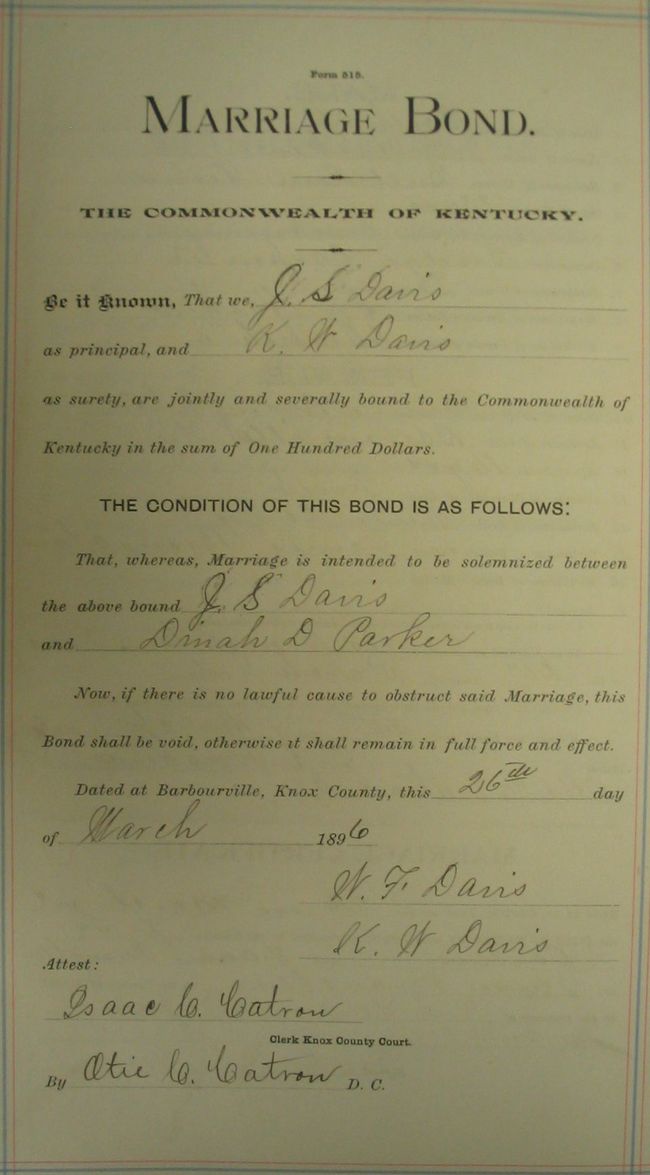 Form 515.
MARRIAGE BOND.
THE COMMONWEALTH OF KENTUCKY.
Be it Known, That we, J. S Davis
as principal, and K. W Davis
as surety, are jointly and severally bound to the Commonwealth of
Kentucky in the sum of One Hundred Dollars.
THE CONDITION OF THIS BOND IS AS FOLLOWS:
That, whereas, Marriage is intended to be solemnized between
the above bound J. S Davis
and Dinah D Parker
Now, if there is no lawful cause to obstruct said Marriage, this
Bond shall be void, otherwise it shall remain in full force and effect.
Dated at Barbourville, Knox County, this 26th day
of March 1896
W. F. Davis
K. W Davis
Attest:
Isaac C. Catron
Clerk Knox County Court.
By Otie C. Catron D. C.